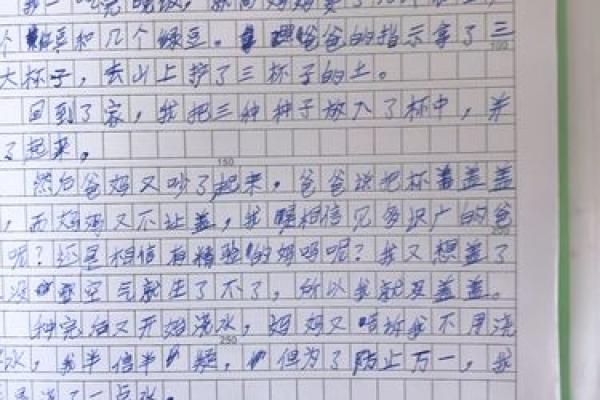 我一吃完晚饭，就问妈妈要了几个
个豆和几个绿豆。照爸爸的指示拿了三
100
大杯子，去山上挖了三杯子的土。
回到了家，我把三种种子放入了杯中，并
了起来，
150
然后爸妈又吵了起来，爸爸说把杯盖盖
，而妈妈又不让盖，我是相信见多识广的爸
200
呢？还是相信有精验的妈妈呢？我又想盖了
没空气就生了不了，所以我就没盖盖。
种完后又开始浇水，妈妈又告诉我不用浇
250
水，我半信半疑，但为了防止万一，我
是浇了一点水。